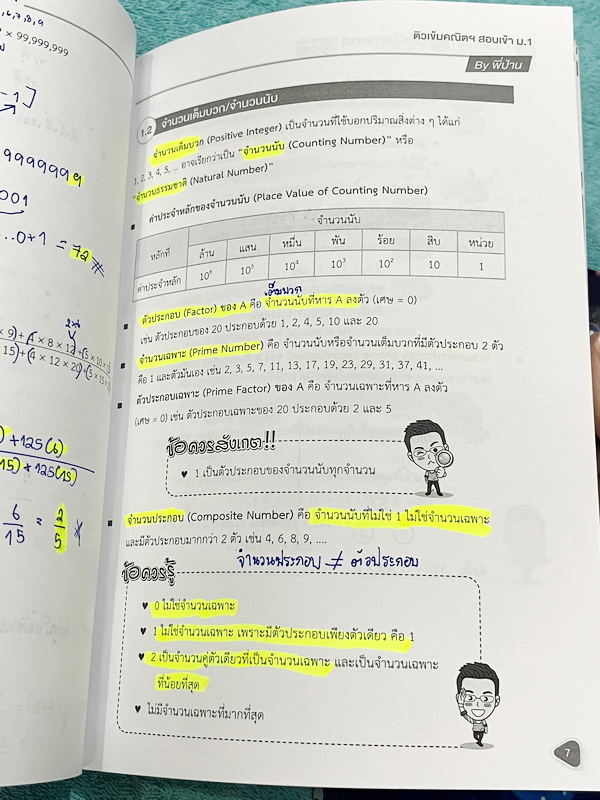 × 99,999,999
= 72
6
15
=
2
5
ติวเข้มคณิตฯ สอบเข้า ม.1
By พี่ปาน
1.2 จำนวนเต็มบวก/จำนวนนับ
จำนวนเต็มบวก (Positive Integer) เป็นจำนวนที่ใช้บอกปริมาณสิ่งต่าง ๆ ได้แก่
1, 2, 3, 4, 5, ... อาจเรียกว่าเป็น "จำนวนนับ (Counting Number)" หรือ
"จำนวนธรรมชาติ (Natural Number)"
■ ค่าประจำหลักของจำนวนนับ (Place Value of Counting Number)
จำนวนนับ
หลักที่ ล้าน แสน หมื่น พัน ร้อย สิบ หน่วย
ค่าประจำหลัก 10⁶ 10⁵ 10⁴ 10³ 10² 10 1
เต็มบวก
■ ตัวประกอบ (Factor) ของ A คือ จำนวนนับที่หาร A ลงตัว (เศษ = 0)
เช่น ตัวประกอบของ 20 ประกอบด้วย 1, 2, 4, 5, 10 และ 20
■ จำนวนเฉพาะ (Prime Number) คือ จำนวนนับหรือจำนวนเต็มบวกที่มีตัวประกอบ 2 ตัว
คือ 1 และตัวมันเอง เช่น 2, 3, 5, 7, 11, 13, 17, 19, 23, 29, 31, 37, 41, ...
■ ตัวประกอบเฉพาะ (Prime Factor) ของ A คือ จำนวนเฉพาะที่หาร A ลงตัว
(เศษ = 0) เช่น ตัวประกอบเฉพาะของ 20 ประกอบด้วย 2 และ 5
ข้อควรสังเกต!!
♥ 1 เป็นตัวประกอบของจำนวนนับทุกจำนวน
■ จำนวนประกอบ (Composite Number) คือ จำนวนนับที่ไม่ใช่ 1 ไม่ใช่จำนวนเฉพาะ
และมีตัวประกอบมากกว่า 2 ตัว เช่น 4, 6, 8, 9, ....
จำนวนประกอบ ≠ ตัวประกอบ
ข้อควรรู้
♥ 0 ไม่ใช่จำนวนเฉพาะ
♥ 1 ไม่ใช่จำนวนเฉพาะ เพราะมีตัวประกอบเพียงตัวเดียว คือ 1
♥ 2 เป็นจำนวนคู่ตัวเดียวที่เป็นจำนวนเฉพาะ และเป็นจำนวนเฉพาะ
ที่น้อยที่สุด
♥ ไม่มีจำนวนเฉพาะที่มากที่สุด
7